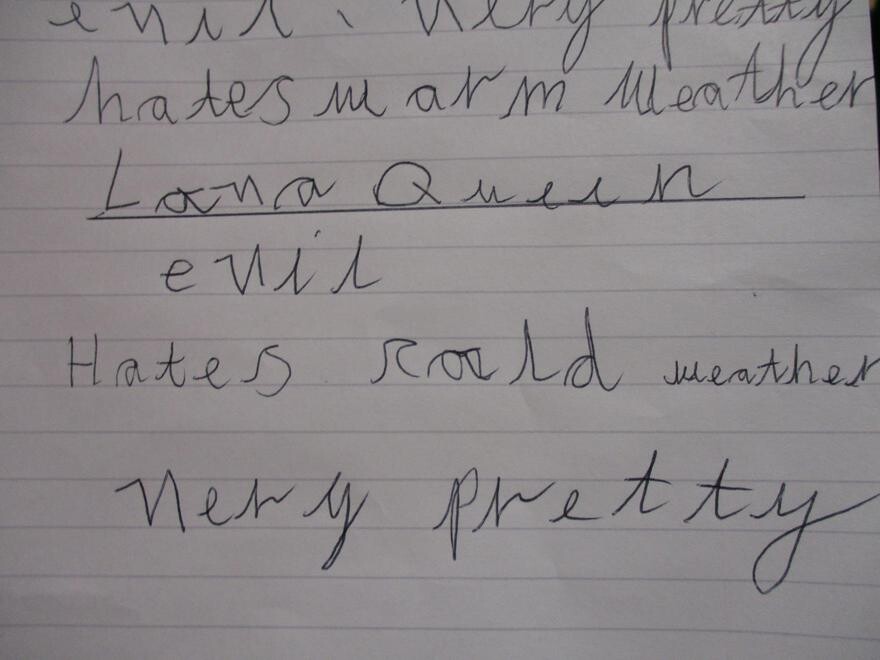 evil. Very pretty
hates warm weather
Lava Queen
evil
Hates coald weather
Very pretty